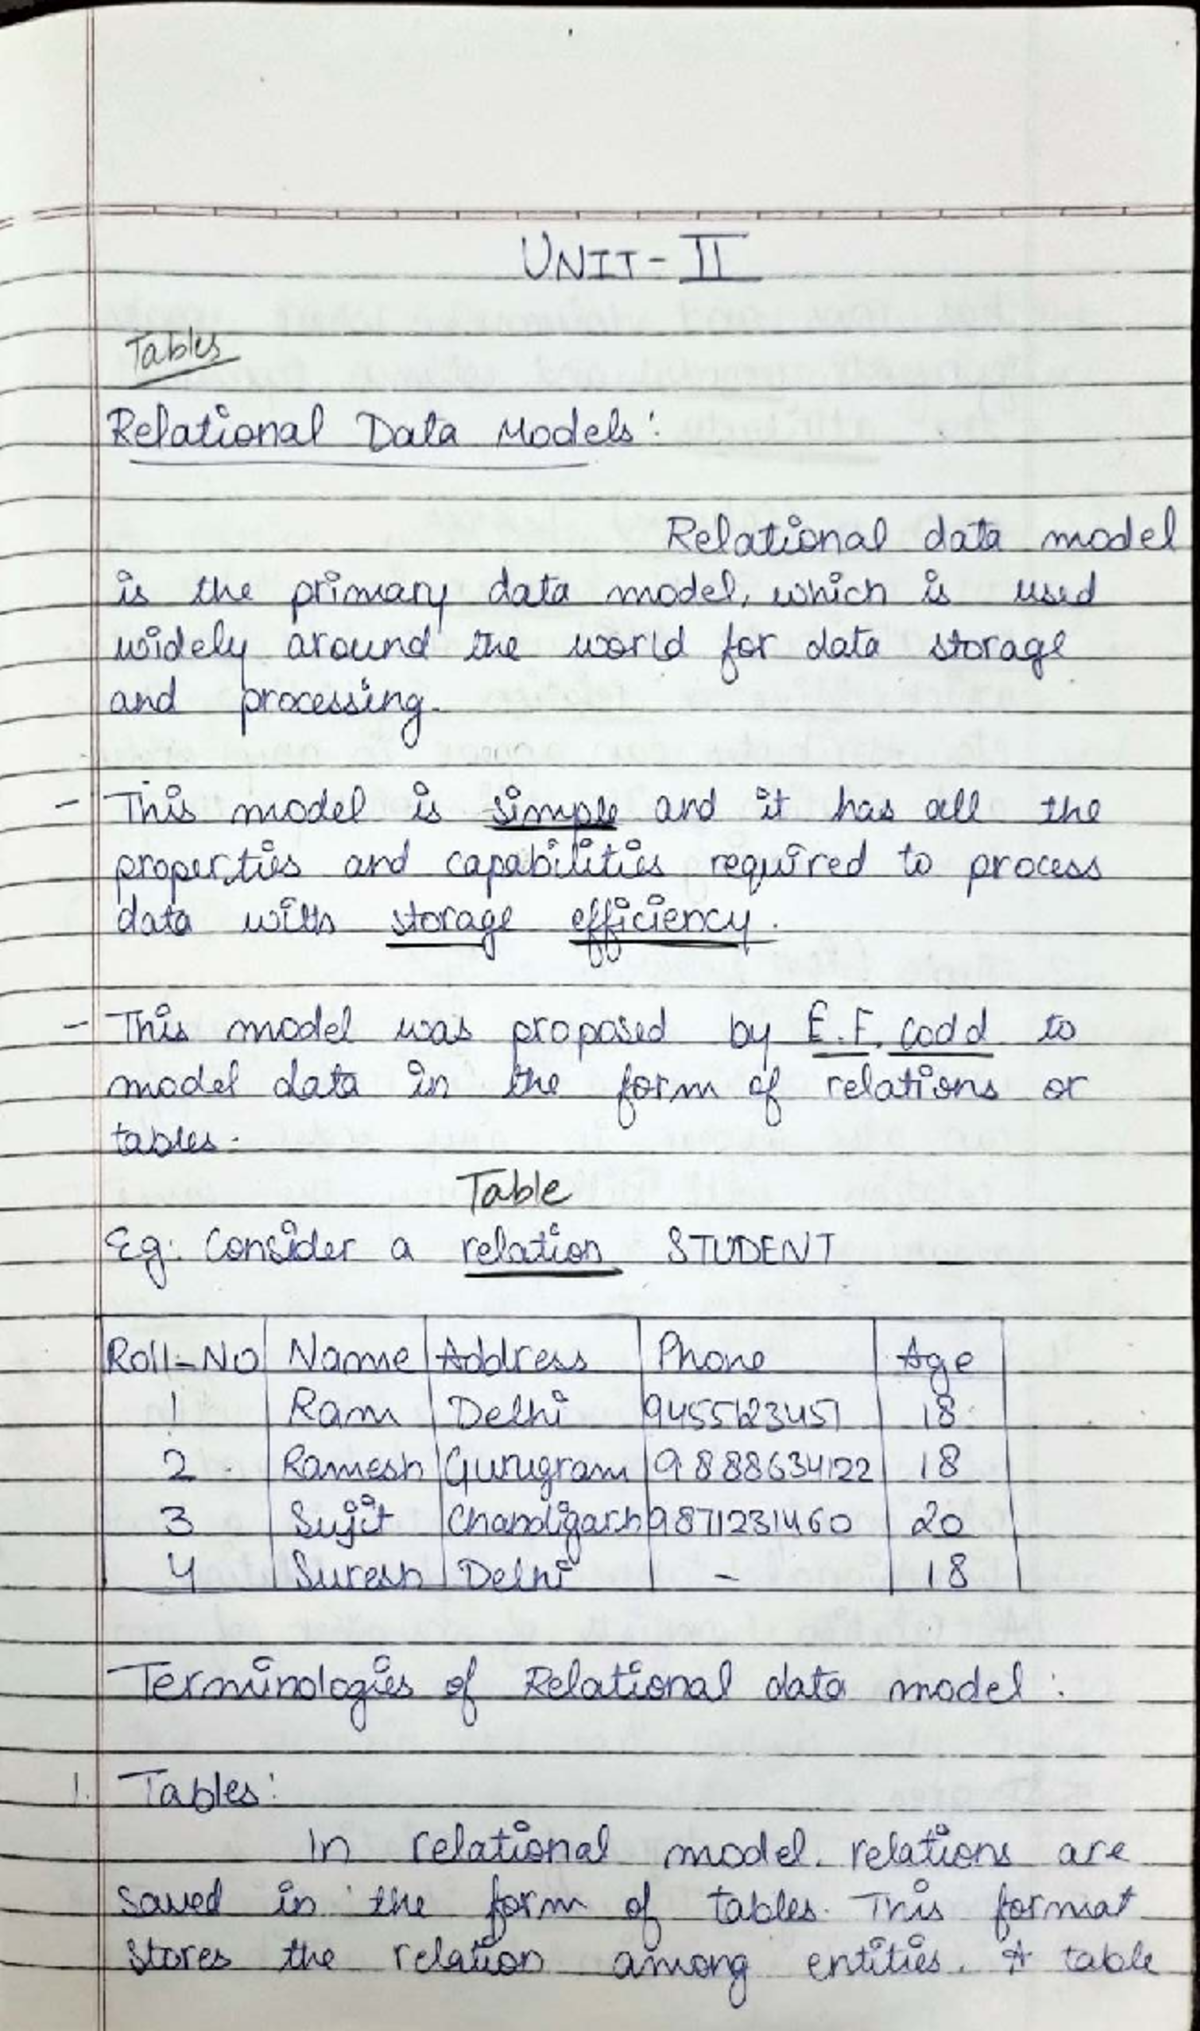 UNIT-II
Tables
Relational Data Models:
Relational data model
is the primary data model, which is used
widely around the world for data storage
and processing.
- This model is simple and it has all the
properties and capabilities required to process
data with storage efficiency.
- This model was proposed by E.F. Codd to
model data in the form of relations or
tables.
Table
Eg: Consider a relation STUDENT
Roll-No Name Address Phone Age
1 Ram Delhi 9455123451 18
2 Ramesh Gurugram 9888634122 18
3 Sujit Chandigarh 9871231460 20
4 Suresh Delhi - 18
Terminologies of Relational data model:
1. Tables:
In relational model. relations are
saved in the form of tables. This format
stores the relation among entities. A table